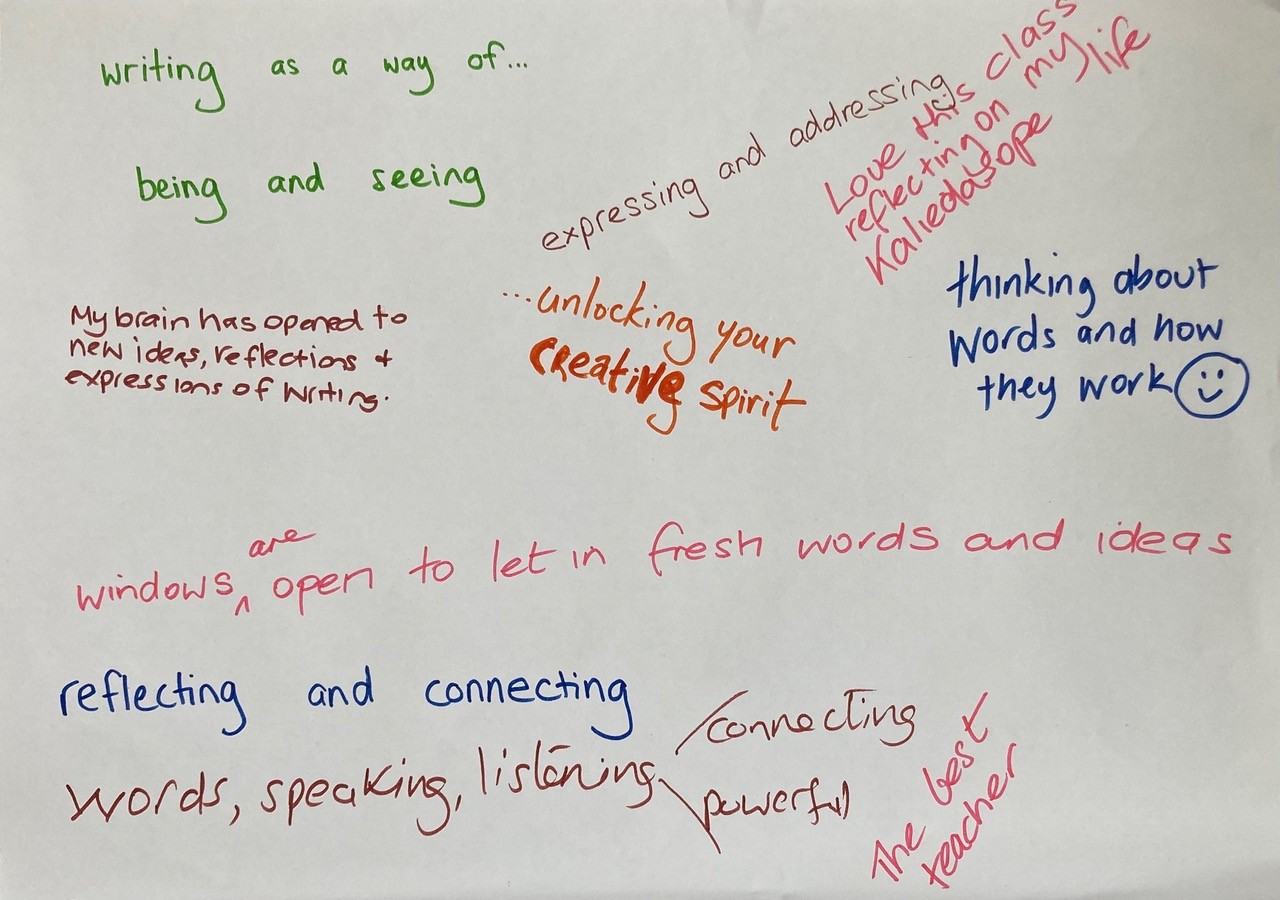 writing as a way of...
being and seeing
expressing and addressing
Love this class
reflecting on my life
Kaliedasope
My brain has opened to
new ideas, reflections +
expressions of writing.
...unlocking your
creative spirit
thinking about
words and how
they work
are
windows ^ open to let in fresh words and ideas
reflecting and connecting
words, speaking, listening
connecting
powerful
The best
teacher